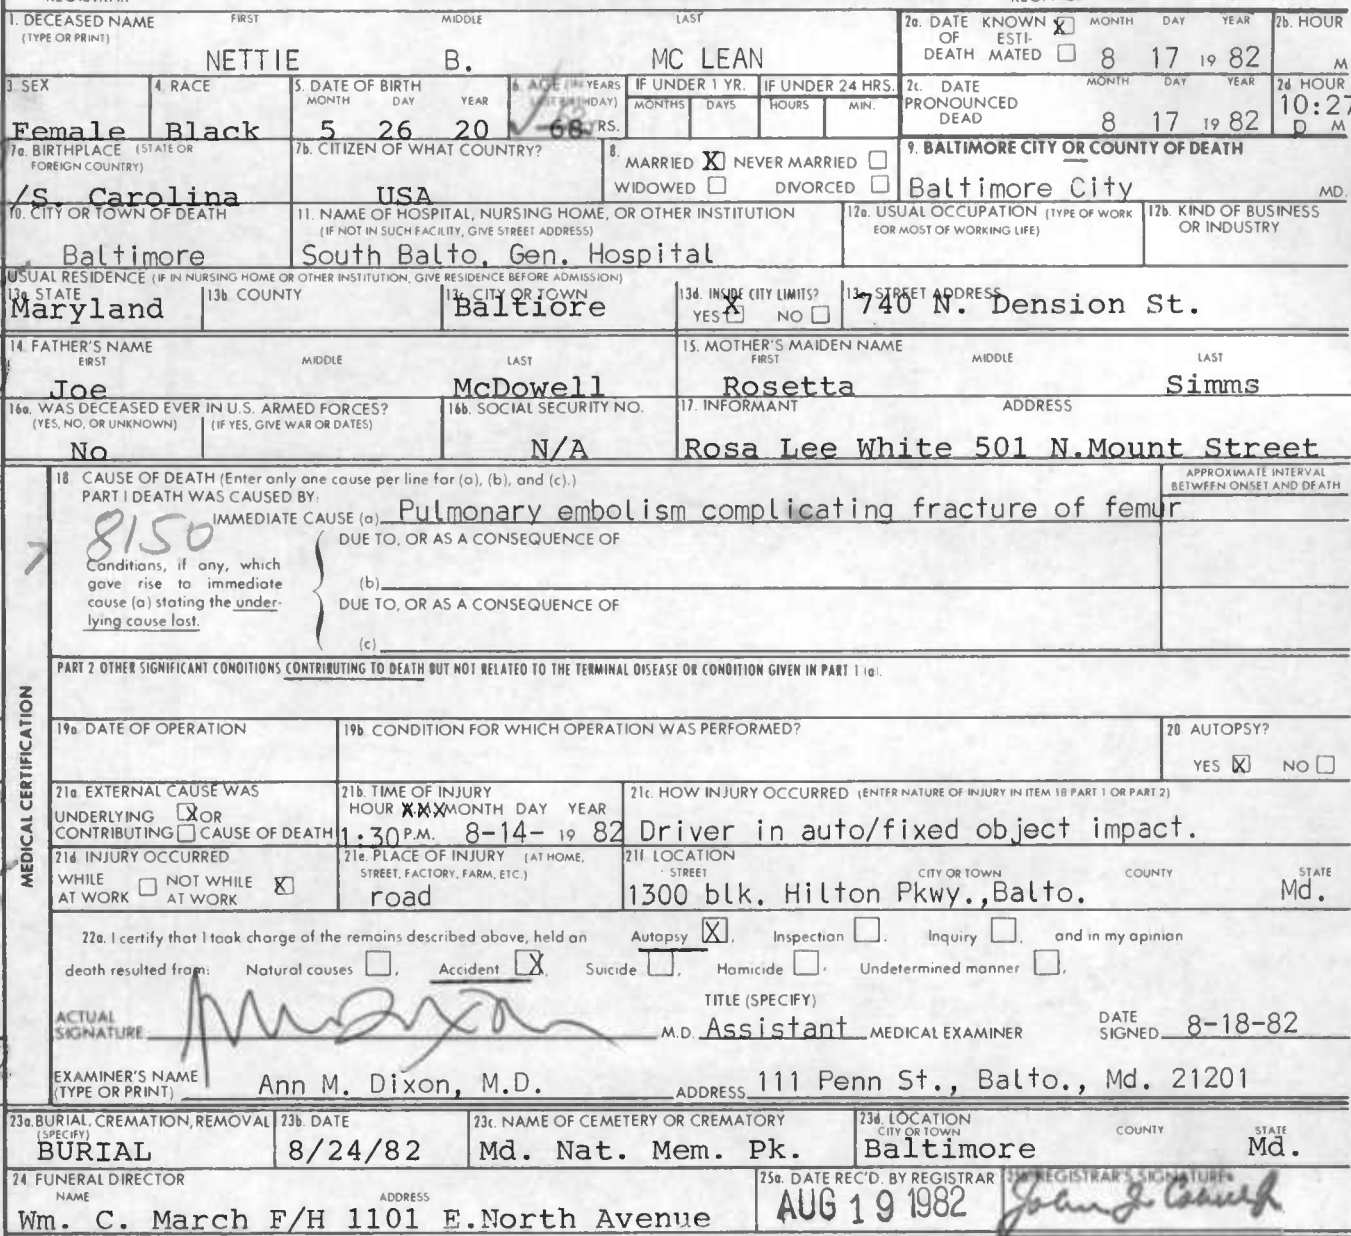 1. DECEASED NAME FIRST MIDDLE LAST
(TYPE OR PRINT)
NETTIE B. MC LEAN
2a. DATE OF DEATH KNOWN X ESTIMATED MONTH DAY YEAR
8 17 19 82
2b. HOUR
M
3 SEX
Female
4. RACE
Black
5. DATE OF BIRTH
MONTH DAY YEAR
5 26 20
6. AGE (IN YEARS
68 YRS.
IF UNDER 1 YR.
MONTHS DAYS
IF UNDER 24 HRS.
HOURS MIN.
2c. DATE PRONOUNCED DEAD MONTH DAY YEAR
8 17 19 82
2d HOUR
10:27
P M
7a. BIRTHPLACE (STATE OR
FOREIGN COUNTRY)
/S. Carolina
7b. CITIZEN OF WHAT COUNTRY?
USA
8.
MARRIED X NEVER MARRIED
WIDOWED DIVORCED
9. BALTIMORE CITY OR COUNTY OF DEATH
Baltimore City MD.
10. CITY OR TOWN OF DEATH
Baltimore
11. NAME OF HOSPITAL, NURSING HOME, OR OTHER INSTITUTION
(IF NOT IN SUCH FACILITY, GIVE STREET ADDRESS)
South Balto. Gen. Hospital
12a. USUAL OCCUPATION (TYPE OF WORK
FOR MOST OF WORKING LIFE)
12b. KIND OF BUSINESS
OR INDUSTRY
USUAL RESIDENCE (IF IN NURSING HOME OR OTHER INSTITUTION, GIVE RESIDENCE BEFORE ADMISSION)
13a STATE
Maryland
13b COUNTY
13c CITY OR TOWN
Baltiore
13d. INSIDE CITY LIMITS?
YES X NO
STREET ADDRESS
740 N. Dension St.
14. FATHER'S NAME
FIRST MIDDLE LAST
Joe McDowell
15. MOTHER'S MAIDEN NAME
FIRST MIDDLE LAST
Rosetta Simms
16a. WAS DECEASED EVER IN U.S. ARMED FORCES?
(YES, NO, OR UNKNOWN) (IF YES, GIVE WAR OR DATES)
No
16b. SOCIAL SECURITY NO.
N/A
17. INFORMANT ADDRESS
Rosa Lee White 501 N.Mount Street
MEDICAL CERTIFICATION
18 CAUSE OF DEATH (Enter only one cause per line for (a), (b), and (c).)
PART I DEATH WAS CAUSED BY:
IMMEDIATE CAUSE (a) Pulmonary embolism complicating fracture of femur
APPROXIMATE INTERVAL
BETWEEN ONSET AND DEATH
8150
DUE TO, OR AS A CONSEQUENCE OF
Conditions, if any, which
gave rise to immediate
cause (a) stating the under-
lying cause last.
(b)
DUE TO, OR AS A CONSEQUENCE OF
(c)
PART 2 OTHER SIGNIFICANT CONDITIONS CONTRIBUTING TO DEATH BUT NOT RELATED TO THE TERMINAL DISEASE OR CONDITION GIVEN IN PART 1 (a).
19a DATE OF OPERATION
19b CONDITION FOR WHICH OPERATION WAS PERFORMED?
20 AUTOPSY?
YES X NO
21a EXTERNAL CAUSE WAS
UNDERLYING X OR
CONTRIBUTING CAUSE OF DEATH
21b. TIME OF INJURY
HOUR XXX MONTH DAY YEAR
1:30 P.M. 8-14- 19 82
21c. HOW INJURY OCCURRED (ENTER NATURE OF INJURY IN ITEM 18 PART 1 OR PART 2)
Driver in auto/fixed object impact.
21d INJURY OCCURRED
WHILE AT WORK NOT WHILE AT WORK X
21e. PLACE OF INJURY (AT HOME,
STREET, FACTORY, FARM, ETC.)
road
21f LOCATION
STREET CITY OR TOWN COUNTY STATE
1300 blk. Hilton Pkwy.,Balto. Md.
22a. I certify that I took charge of the remains described above, held an Autopsy X, Inspection, Inquiry, and in my opinion
death resulted from: Natural causes, Accident X, Suicide, Homicide, Undetermined manner,
ACTUAL
SIGNATURE
M.D.
TITLE (SPECIFY)
Assistant MEDICAL EXAMINER
DATE
SIGNED 8-18-82
EXAMINER'S NAME
(TYPE OR PRINT) Ann M. Dixon, M.D.
ADDRESS 111 Penn St., Balto., Md. 21201
23a. BURIAL, CREMATION, REMOVAL
(SPECIFY)
BURIAL
23b. DATE
8/24/82
23c. NAME OF CEMETERY OR CREMATORY
Md. Nat. Mem. Pk.
23d. LOCATION
CITY OR TOWN COUNTY STATE
Baltimore Md.
24. FUNERAL DIRECTOR
NAME ADDRESS
Wm. C. March F/H 1101 E.North Avenue
25a. DATE REC'D. BY REGISTRAR
AUG 19 1982
REGISTRAR'S SIGNATURE